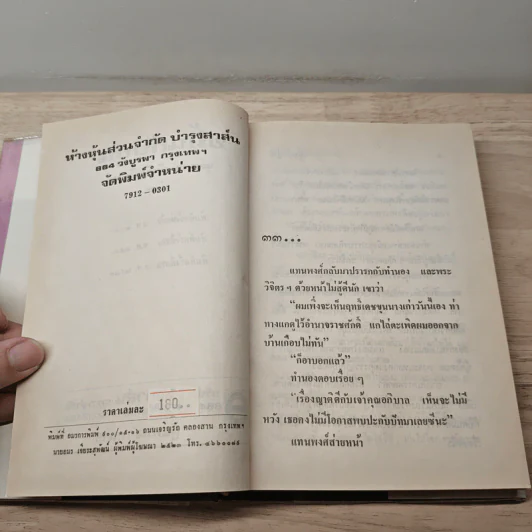 ห้างหุ้นส่วนจำกัด บำรุงสาส์น
๑๑๔ วังบูรพา กรุงเทพฯ
จัดพิมพ์จำหน่าย
7912-0301
ราคาเล่มละ 160..
พิมพ์ที่ ถนนเจริญรัถ คลองสาน กรุงเทพฯ
ผู้พิมพ์ผู้โฆษณา ๒๕๒๓ โทร.
๓๓...
แทนพงศ์กลับมาปรารภกับทำนอง และพระ
วิจิตร ฯ ด้วยหน้าไม่สู้ดีนัก เขาว่า
“ผมเพิ่งจะเห็นฤทธิ์เดชขุนนางเก่าวันนี้เอง ท่า
ทางแกดุไว้อำนาจราชศักดิ์ แกไล่ตะเพิดผมออกจาก
บ้านเกือบไม่ทัน”
“ก็ฉาบอกแล้ว”
ทำนองตอบเรื่อย ๆ
“เรื่องญาติดีกับเจ้าคุณอภิบาล เห็นจะไม่มี
หวัง เธอคงไม่มีโอกาสพบปะกับปัทมาเลยซีนะ”
แทนพงศ์ส่ายหน้า